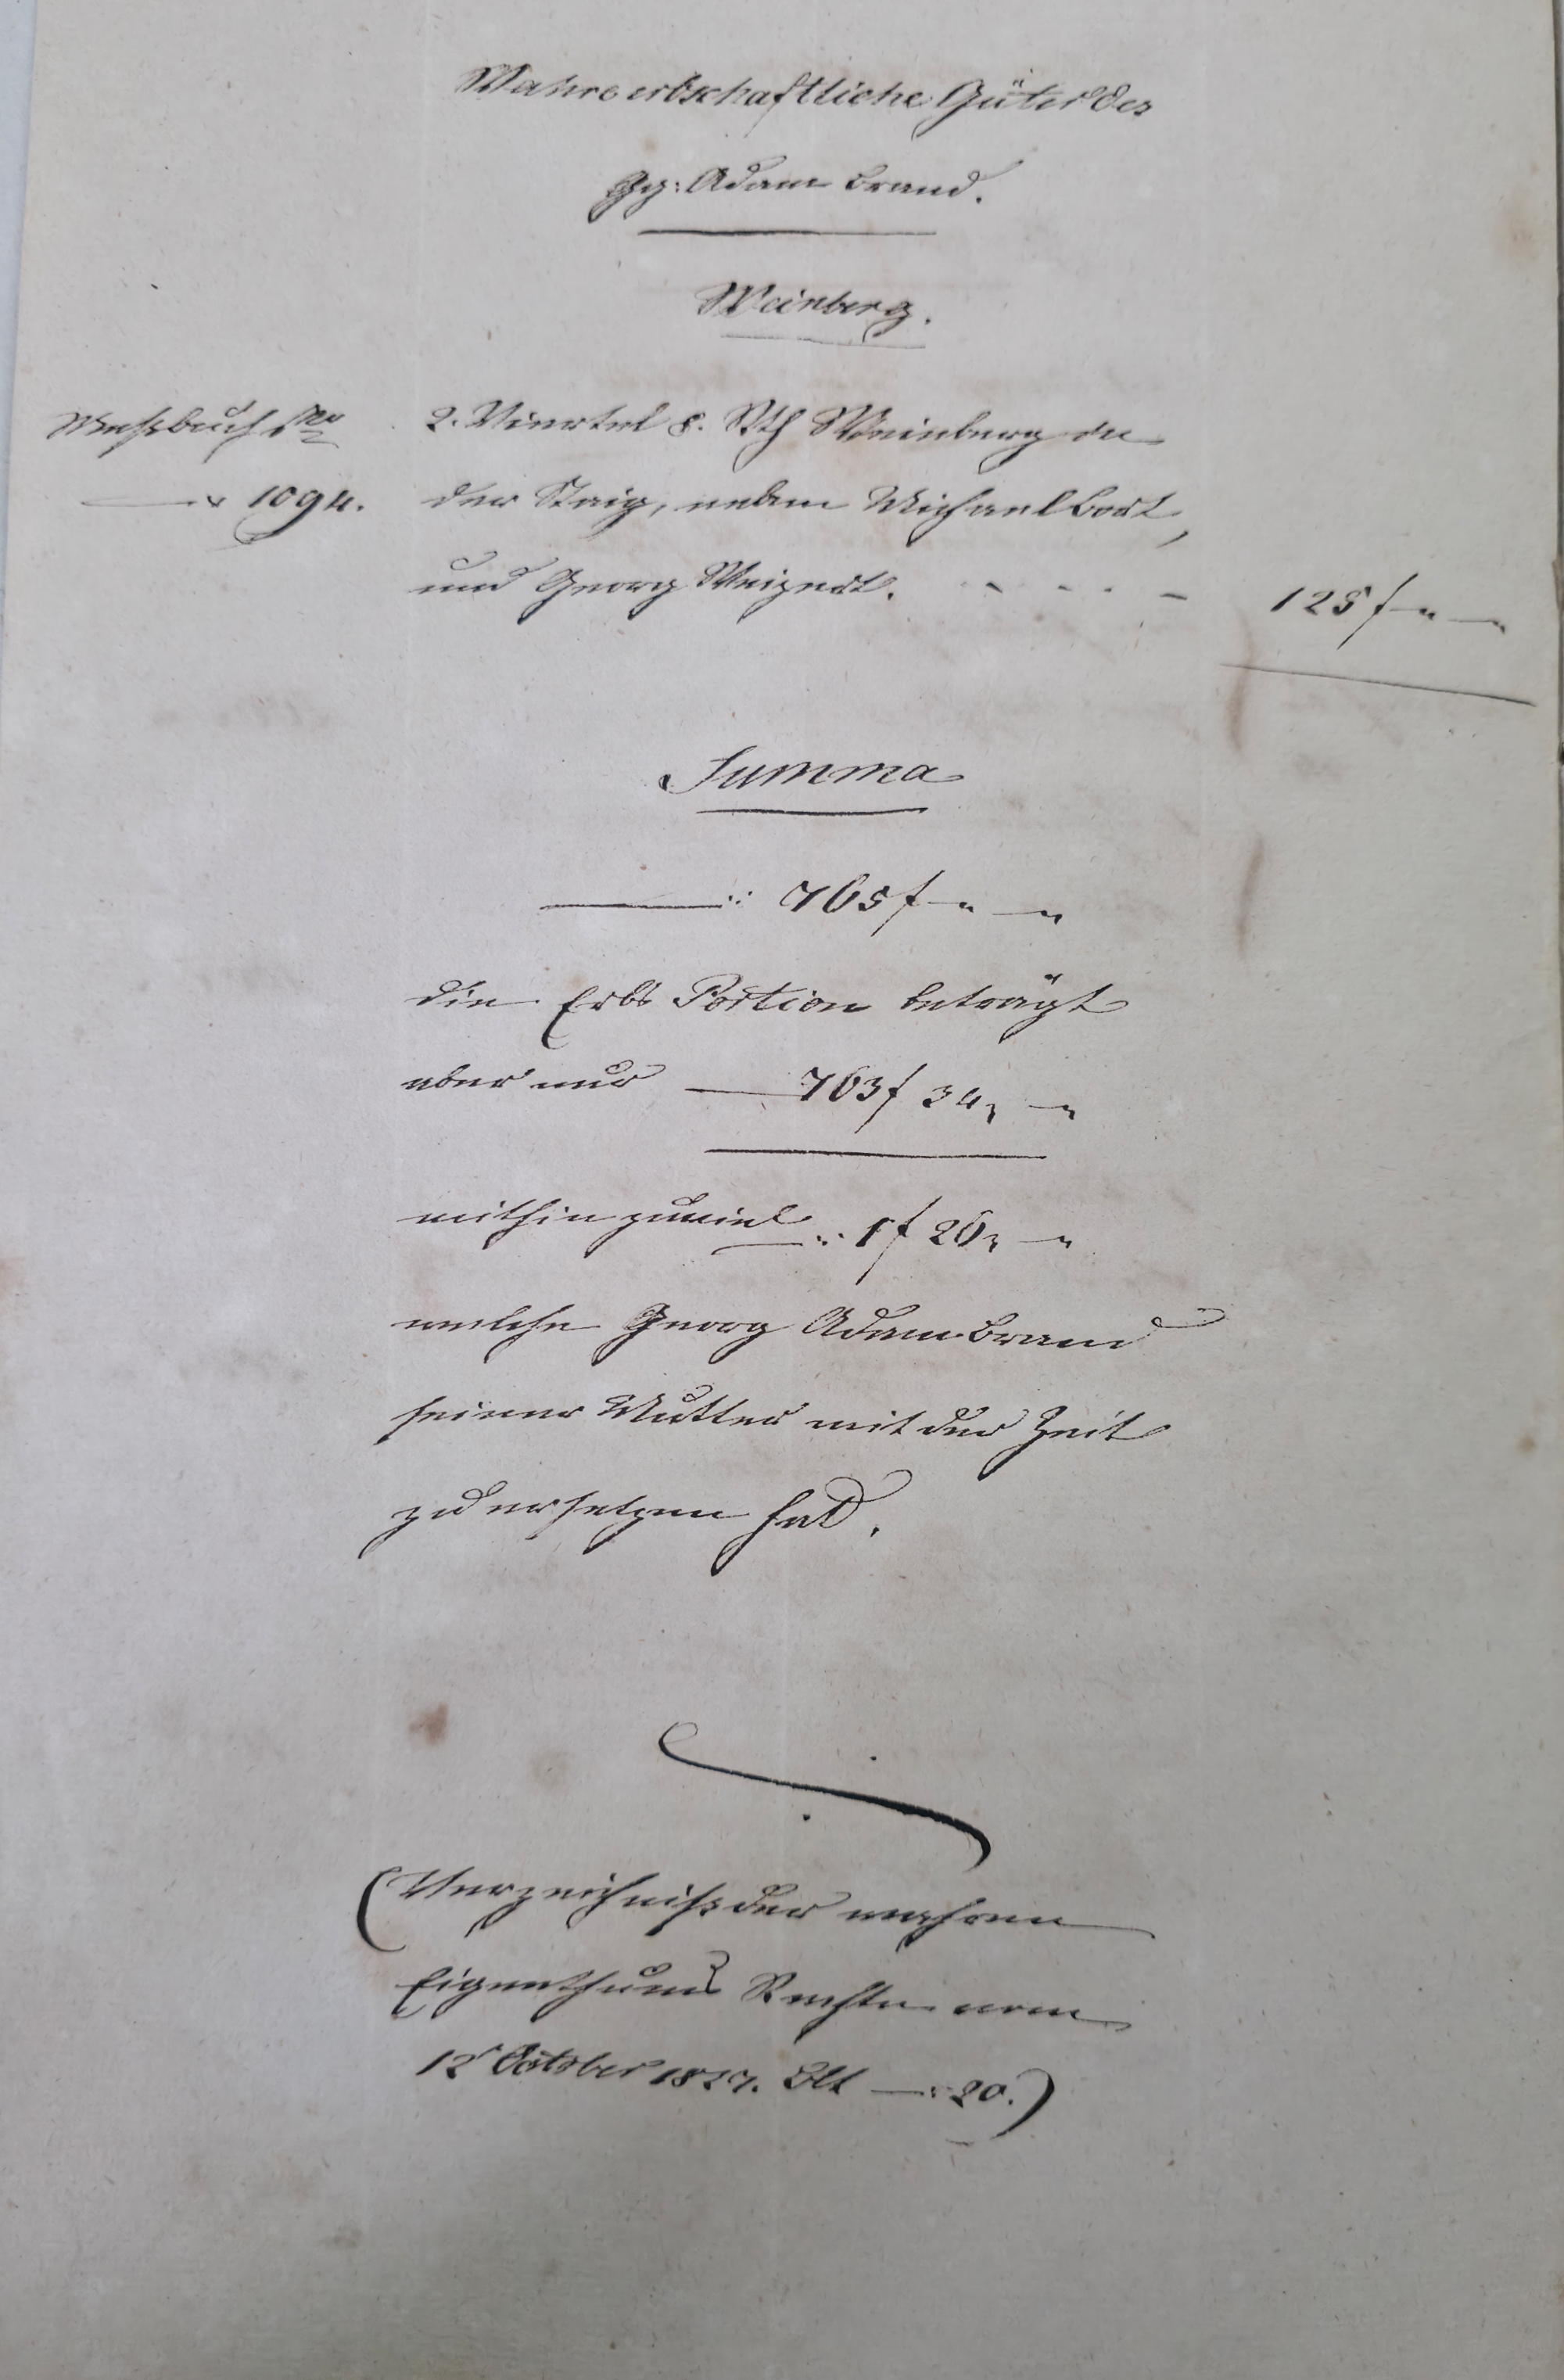 Wahre erbschaftliche Güter des
Gg: Adam Brand.
Weinberg.
Meßbuch Nro 2. Viertel 8. Rth Weinberg in
—— " 1094. der Staig, neben Michael Bort,
und Georg Weigert. - - - - 125 f — " — "
Summa
——— : 765 f — " — "
die Erbs Portion beträgt
aber nur —— 763 f 34 x — "
mithin zuviel —— : 1 f 26 x — "
welche Georg Adam Brand
seiner Mutter mit der Zeit
zu ersetzen hat.
(Verzeichniß der wahren
Eigenthums Rechte vom
12t October 1827. Blt — : 20.)